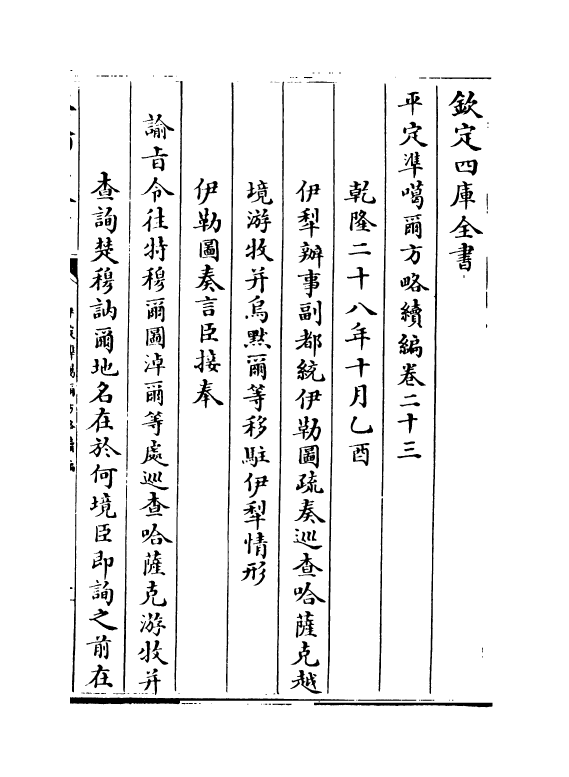 欽定四庫全書
平定準噶爾方略續編卷二十三
乾隆二十八年十月乙酉
伊犁辦事副都統伊勒圖疏奏巡查哈薩克越
境游牧并烏默爾等移駐伊犁情形
伊勒圖奏言臣接奉
諭旨令往特穆爾圖淖爾等處巡查哈薩克游牧并
查詢楚穆訥爾地名在於何境臣即詢之前在